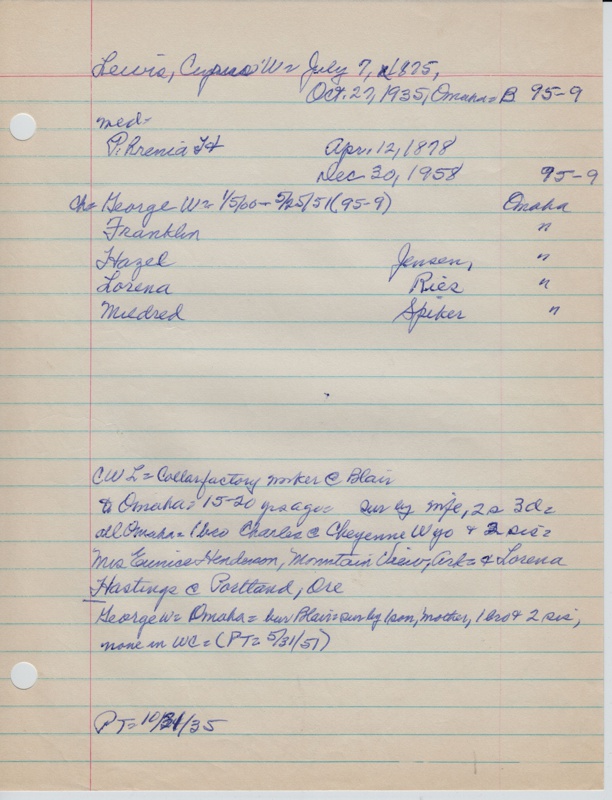 Lewis, Cyprus W = July 7, 1875,
Oct. 27, 1935, Omaha = B 95-9
med =
P. Krenia
Apr. 12, 1878
Dec 30, 1958 95-9
ch = George W = 1/5/00 - 5/25/51 (95-9) Omaha
Franklin "
Hazel Jensen, "
Lorena Ries "
Mildred Spiker "
CWL = Collar factory worker @ Blair
to Omaha = 15-20 yrs ago = sur by wife, 2 s 3 d =
all Omaha = 1 bro Charles @ Cheyenne Wyo + 2 sis =
Mrs Eunice Henderson, Mountain View, Ark = & Lorena
Hastings @ Portland, Ore
George W = Omaha = bur Blair = sur by 1 son, mother, 1 bro & 2 sis,
none in WC = (PT = 5/31/51)
PT = 10/31/35